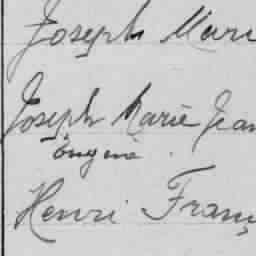 Joseph Mari
Joseph Marie Jean
Eugène
Henri Franç